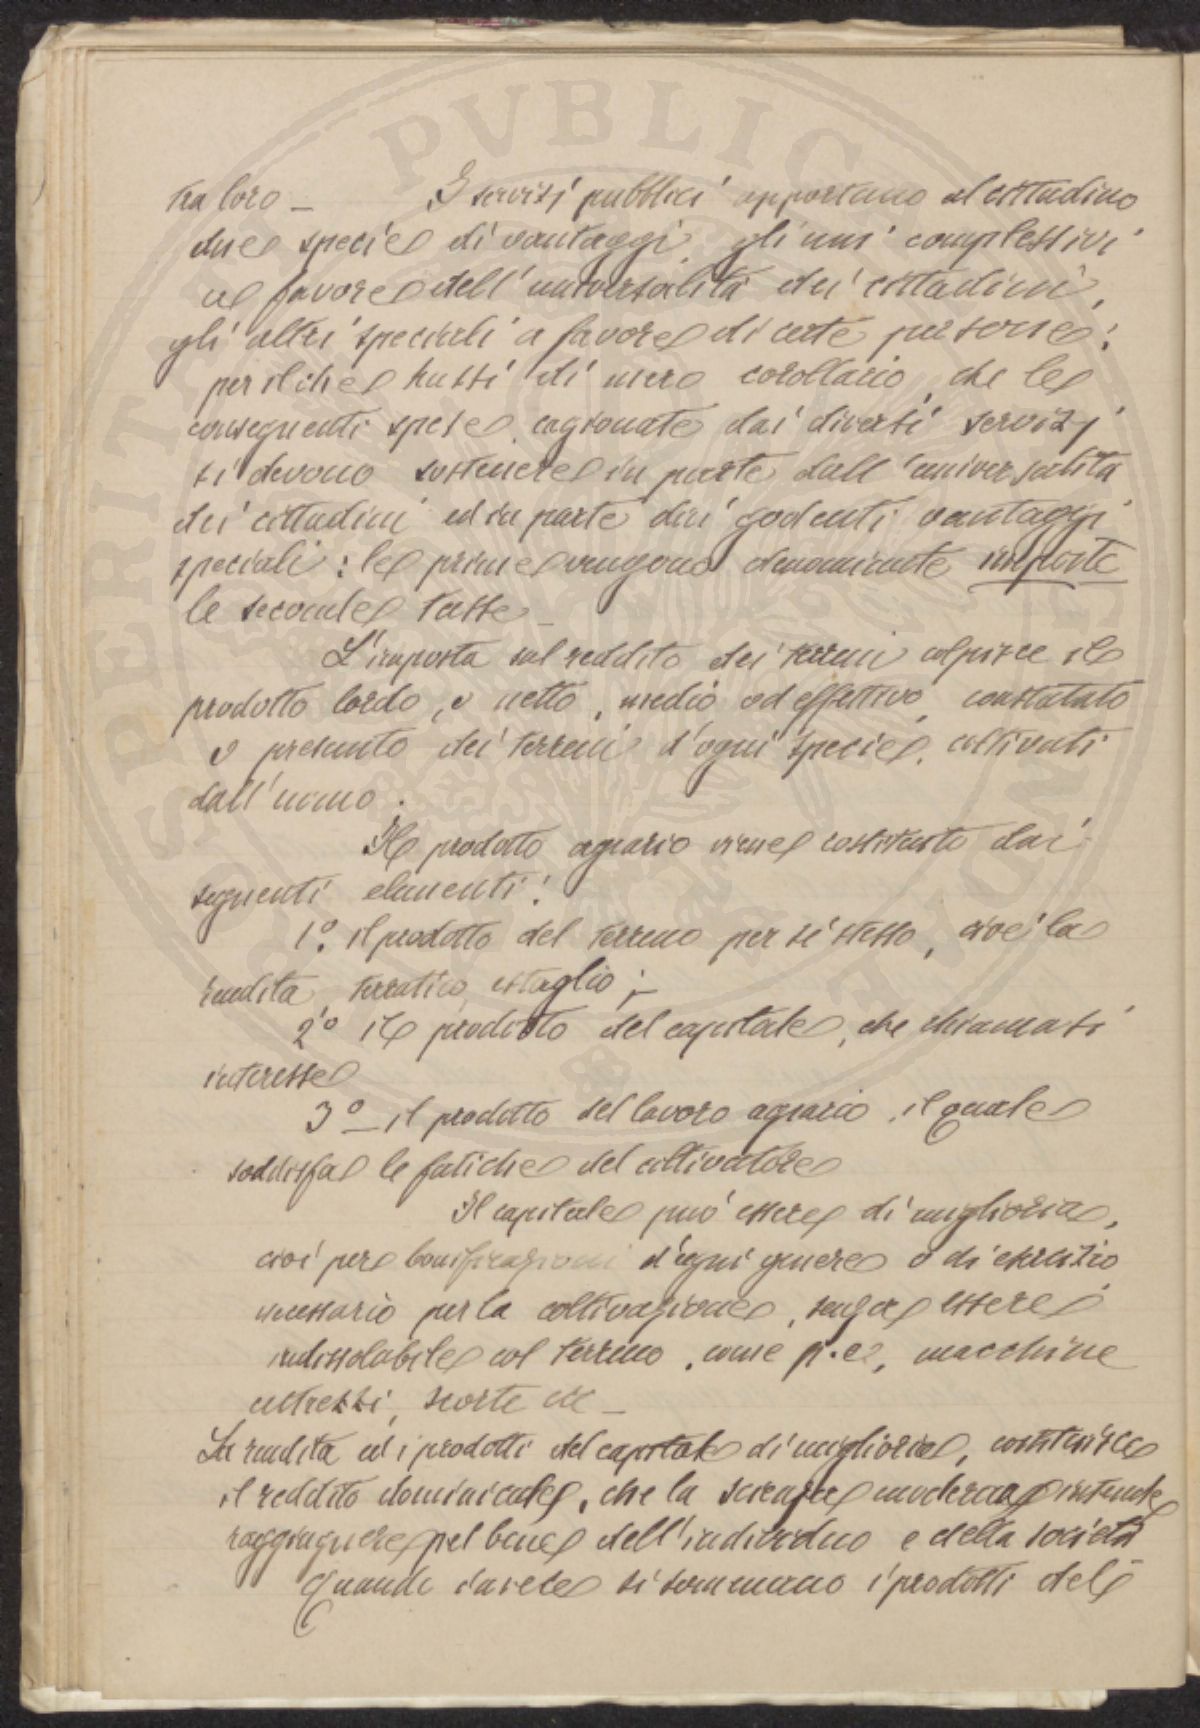 tra loro — I servizj pubblici apportano al cittadino
due specie di vantaggi, gli uni complessivi
a favore dell'universalità dei cittadini,
gli altri speciali a favore di certe persone;
per il che trassi di mero corollario, che le
conseguenti spese, cagionate dai diversi servizj
si devono sostenere in parte dall'universalità
dei cittadini ed in parte dai godenti vantaggi
speciali: le prime vengono denominate imposte
le seconde tasse —
L'imposta sul reddito dei terreni colpisce il
prodotto lordo, o netto, medio od effettivo, constatato
o presunto dei terreni d'ogni specie, coltivati
dall'uomo.
Il prodotto agrario viene costituito dai
seguenti elementi:
1º. il prodotto del terreno per sè stesso, cioè la
rendita, terratico, estaglio;
2º il prodotto del capitale, che chiamasi
interesse
3º — il prodotto del lavoro agrario, il quale
soddisfa le fatiche del coltivatore
Il capitale può essere di miglioria,
cioè per bonificazioni d'ogni genere o di esercizio
necessario per la coltivazione, senza essere
indissolabile col terreno, come p. e., macchine
attrezzi, scorte ec —
La rendita ed i prodotti del capitale di miglioria, costituisce
il reddito dominicale, che la scienza moderna intende
raggiugnere pel bene dell'individuo e della società
Quando invece si sommano i prodotti del
PROSPERITATI PUBLICAE